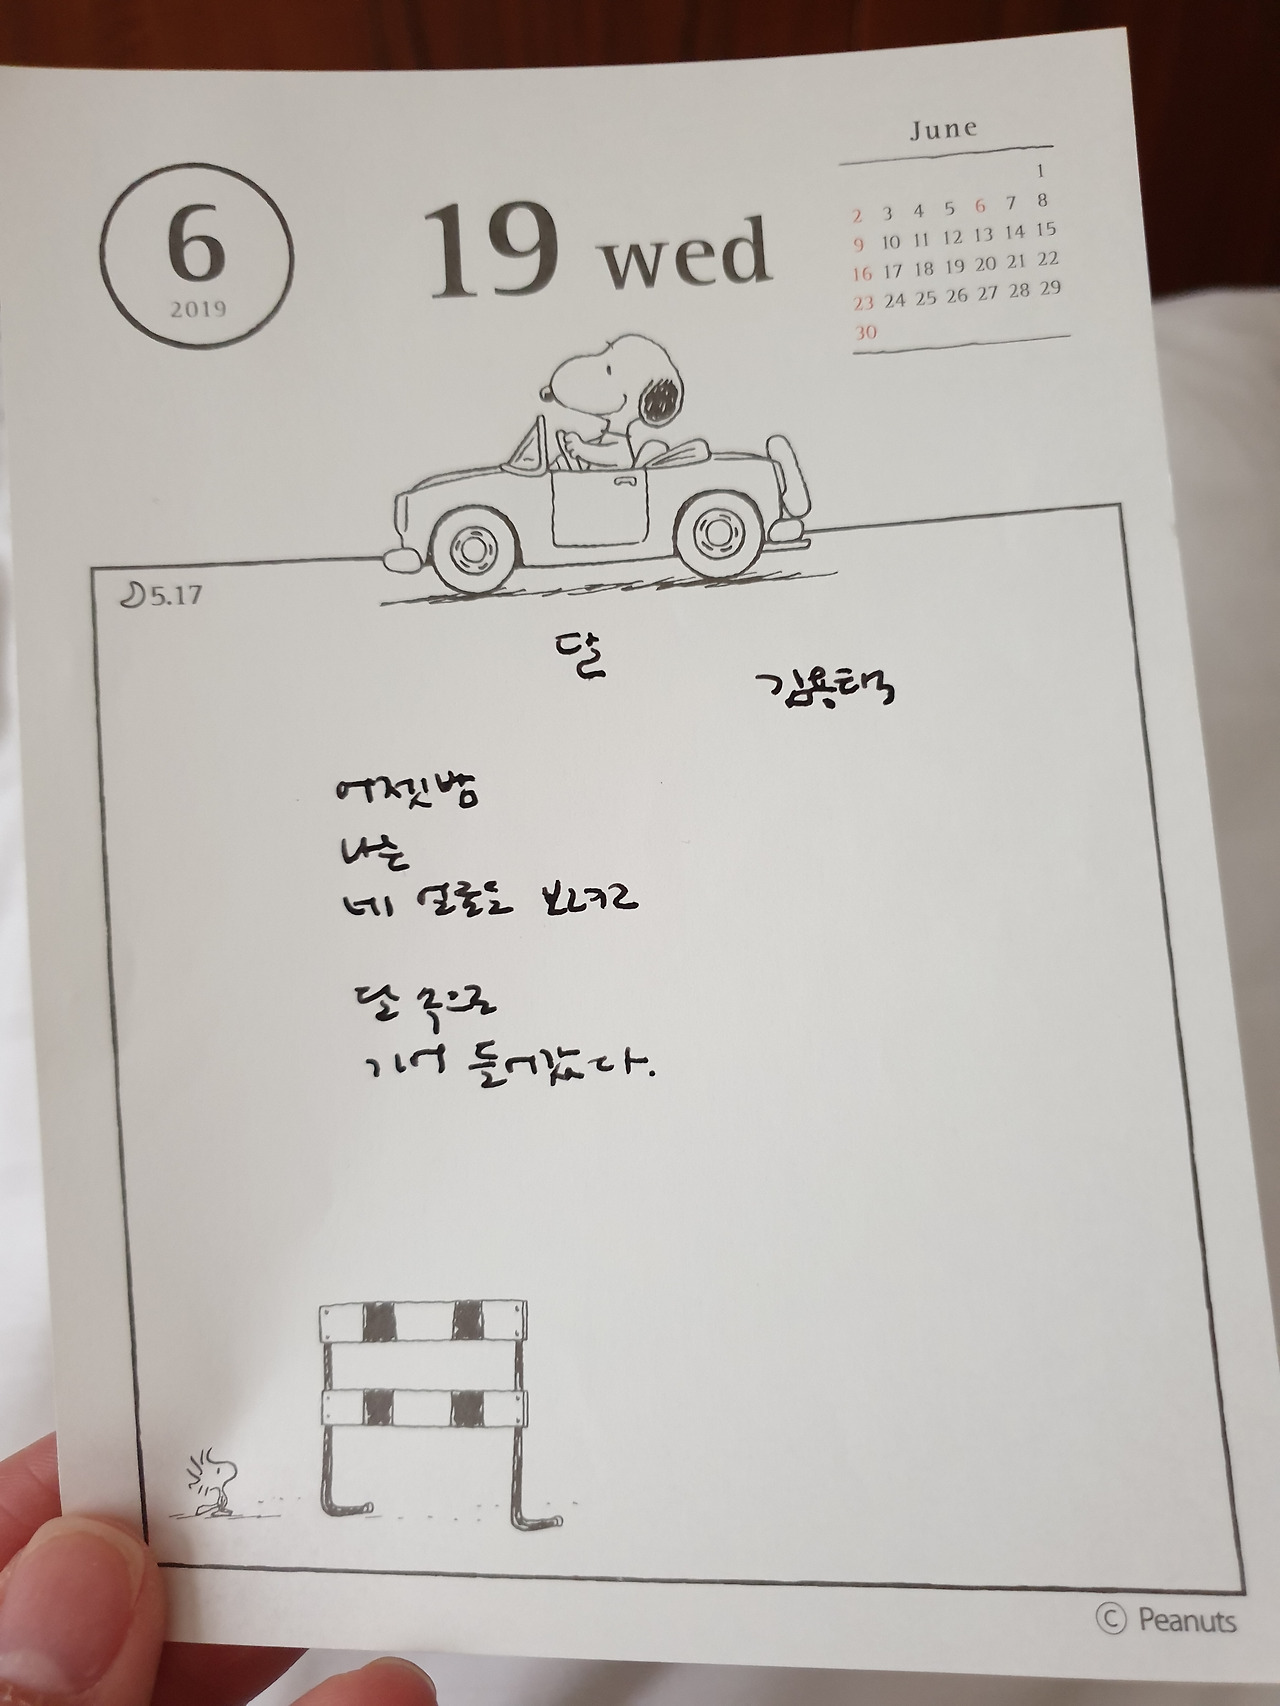 June
1
2 3 4 5 6 7 8
9 10 11 12 13 14 15
16 17 18 19 20 21 22
23 24 25 26 27 28 29
30
6
2019
19 wed
5.17
달
김용택
어젯밤
나는
네 얼굴을 보려고
달 속으로
기어 들어갔다.
© Peanuts